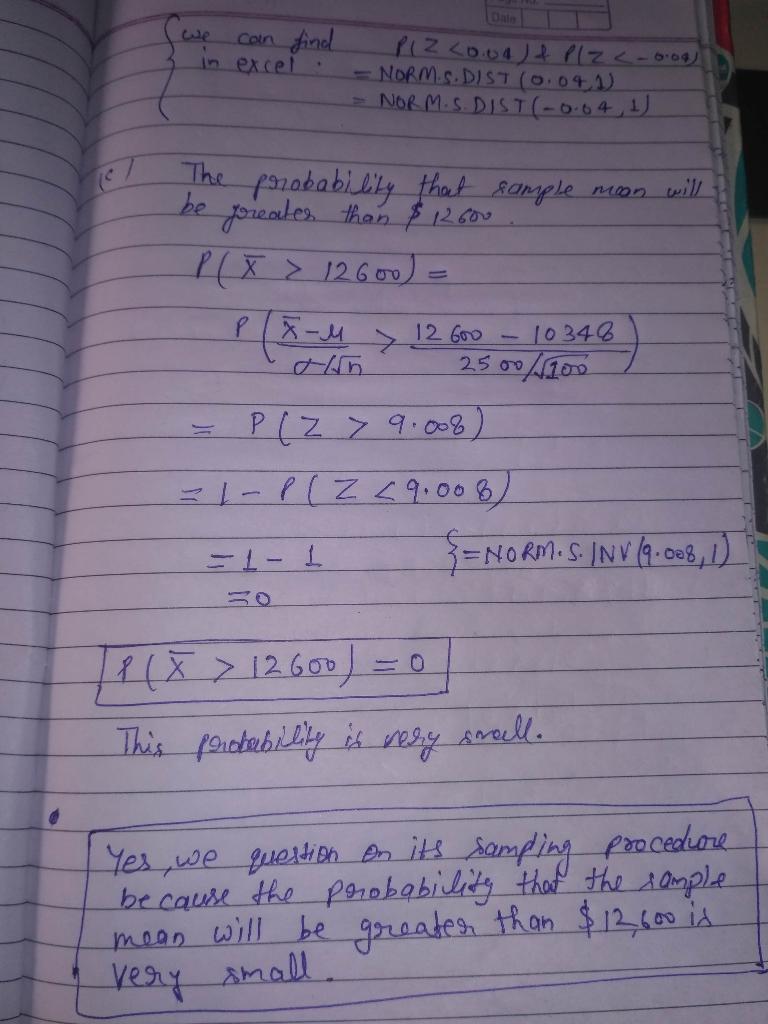 Page No.
Date
we can find P(Z < 0.04) & P(Z < -0.04)
in excel. = NORM.S.DIST (0.04,1)
= NORM.S.DIST (-0.04,1)
(c) The probability that sample mean will
be greater than $ 12600.
P( X̄ > 12600) =
P ( X̄-μ / σ/√n > 12600 - 10348 / 2500/√100 )
= P(Z > 9.008)
= 1 - P(Z < 9.008)
= 1 - 1 }=NORM.S.INV(9.008,1)
= 0
P(X̄ > 12600) = 0
This probability is very small.
Yes, we question on its sampling procedure
because the probability that the sample
mean will be greater than $12,600 is
very small.